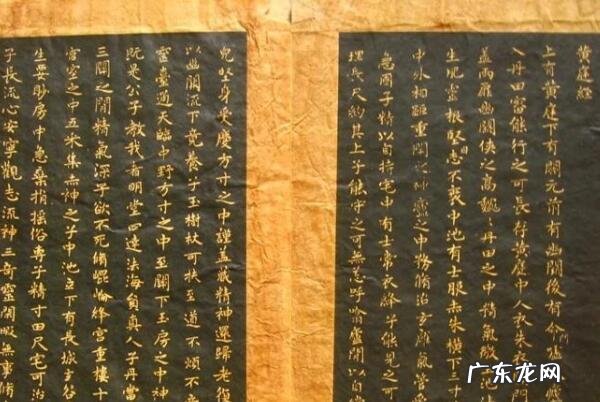 黄庭經
上有黄庭下有關元前有幽闕後有命
入丹田審能行之可長存黄庭中人衣朱 門
蓋兩扉幽闕俠之高巍丹田之中精氣微
生肥靈根堅志不衰中池有士服赤朱横下三寸
中外相距重閉之神廬之中務脩治玄膺氣管受
急固子精以自持宅中有士常衣絳子能見之可
理長尺約其上子能守之可無恙呼噏廬間以自償
兒堅身受慶方寸之中謹蓋藏精神還歸老復
以幽闕流下竟養子玉樹杖可扶至道不煩不
靈臺通天臨中野方寸之中至關下玉房之中神
既是公子教我者明堂四達法海員真人子丹當
三關之間精氣深子欲不死脩崐崘絳宮重樓十
宮室之中五采集赤神之子中池立下有長城玄谷
生要眇房中急棄捐摇俗專子精寸田尺宅可治
子長流心安寧觀志流神三奇靈閑暇無事脩
广东龙网